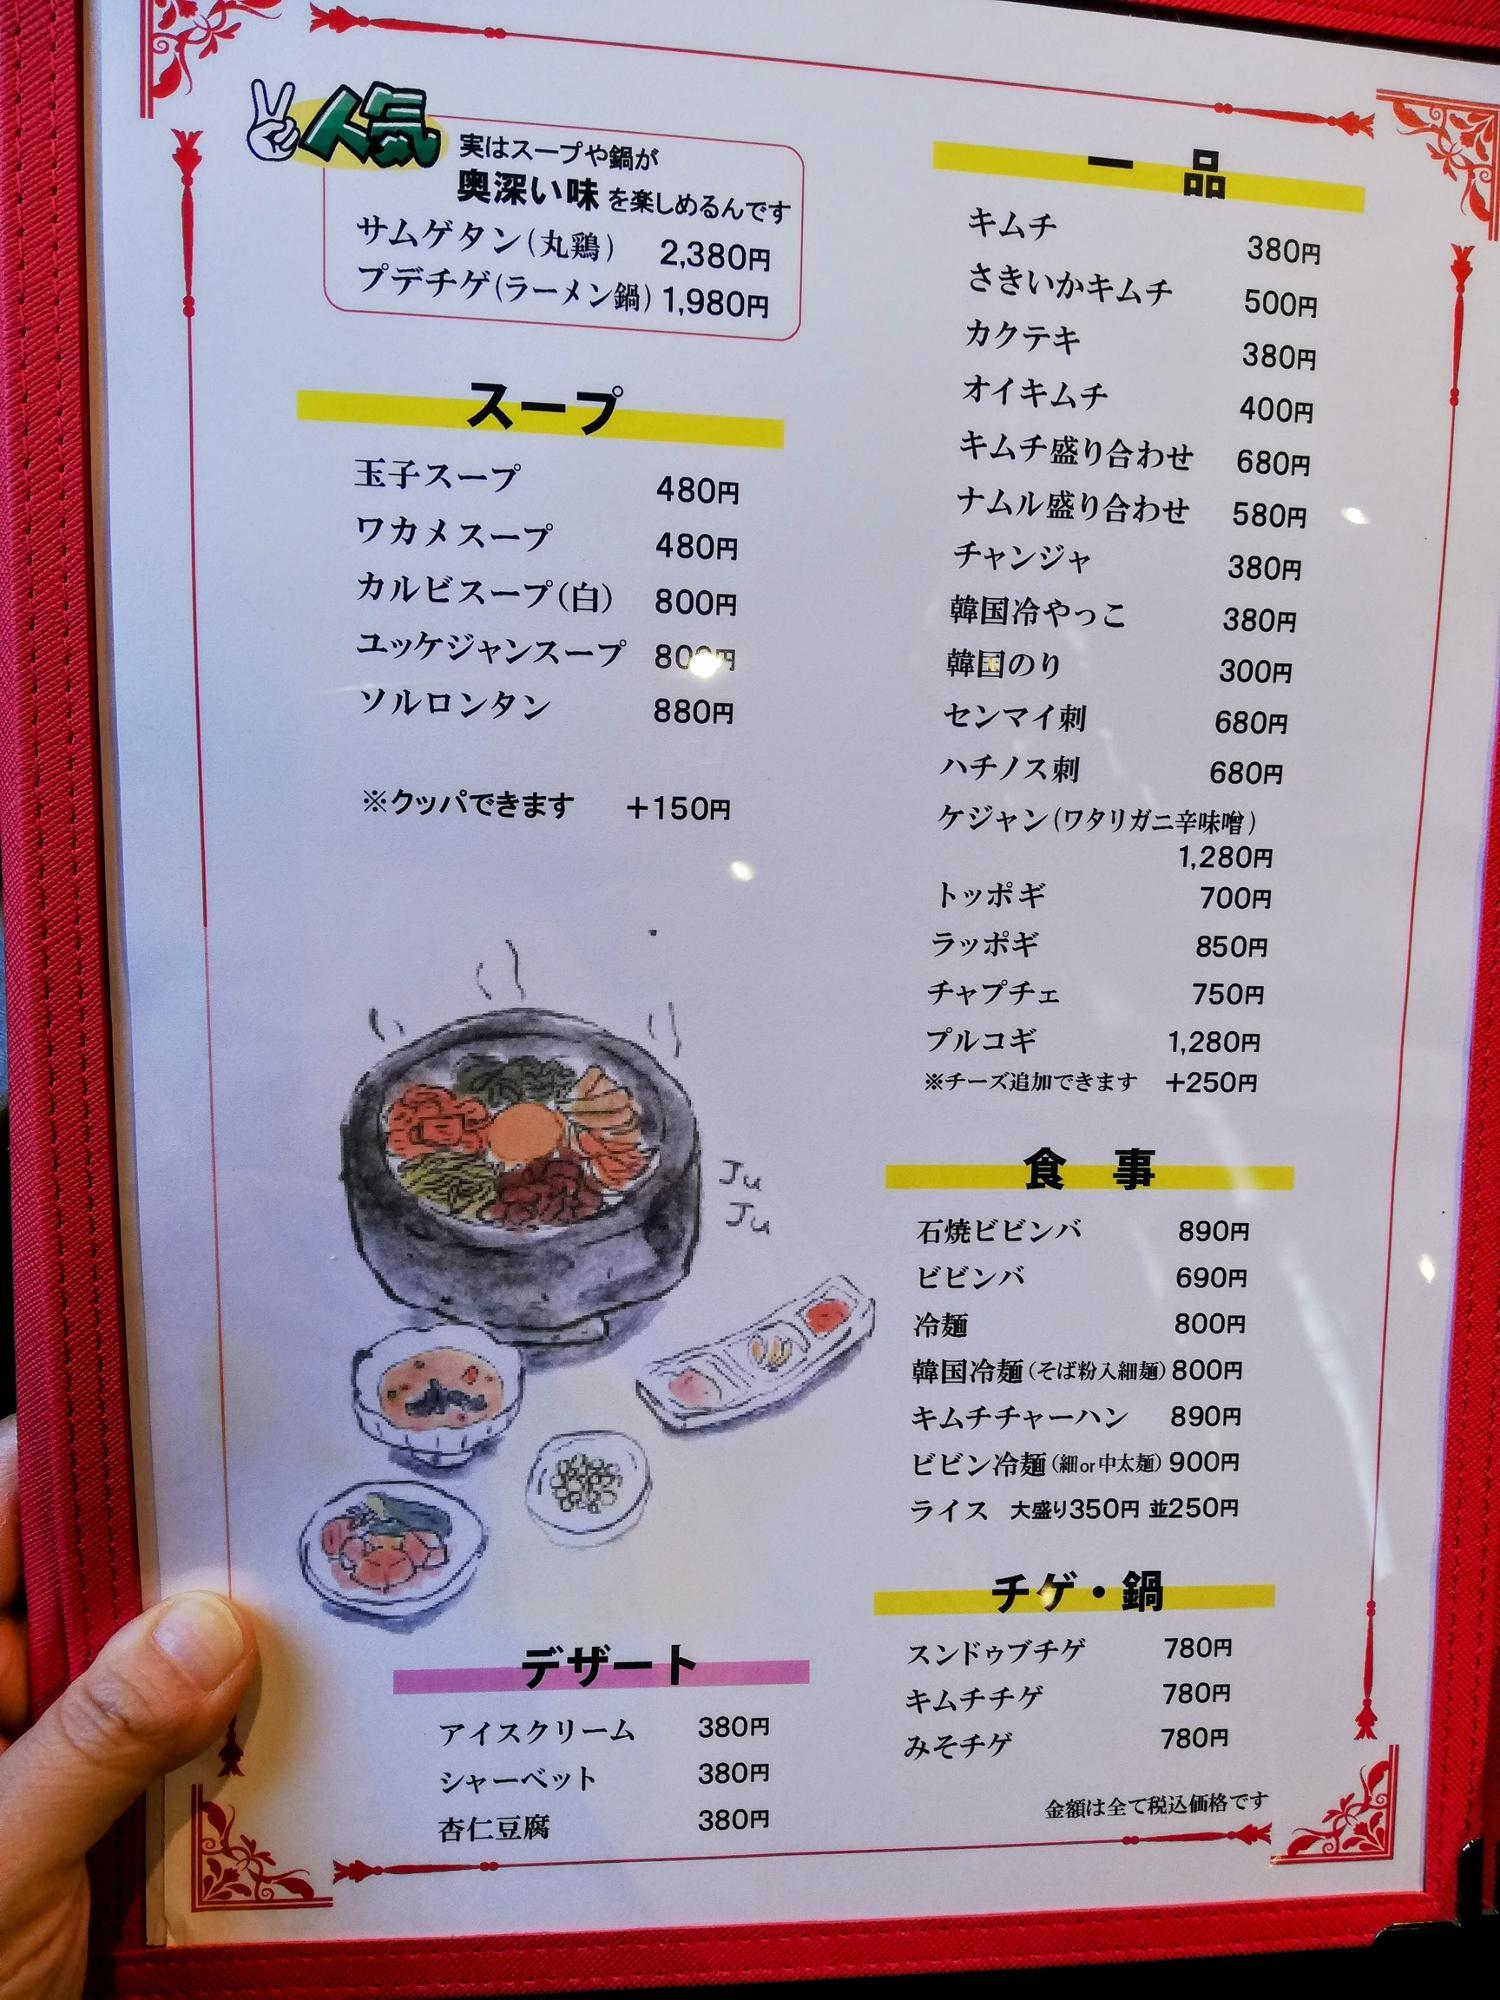 人気
実はスープや鍋が
奥深い味を楽しめるんです
サムゲタン(丸鶏) 2,380円
プデチゲ(ラーメン鍋) 1,980円
スープ
玉子スープ 480円
ワカメスープ 480円
カルビスープ(白) 800円
ユッケジャンスープ 800円
ソルロンタン 880円
※クッパできます +150円
Ju
Ju
デザート
アイスクリーム 380円
シャーベット 380円
杏仁豆腐 380円
一品
キムチ 380円
さきいかキムチ 500円
カクテキ 380円
オイキムチ 400円
キムチ盛り合わせ 680円
ナムル盛り合わせ 580円
チャンジャ 380円
韓国冷やっこ 380円
韓国のり 300円
センマイ刺 680円
ハチノス刺 680円
ケジャン(ワタリガニ辛味噌)
1,280円
トッポギ 700円
ラッポギ 850円
チャプチェ 750円
プルコギ 1,280円
※チーズ追加できます +250円
食事
石焼ビビンバ 890円
ビビンバ 690円
冷麺 800円
韓国冷麺(そば粉入細麺) 800円
キムチチャーハン 890円
ビビン冷麺(細or中太麺) 900円
ライス 大盛り350円 並250円
チゲ・鍋
スンドゥブチゲ 780円
キムチチゲ 780円
みそチゲ 780円
金額は全て税込価格です